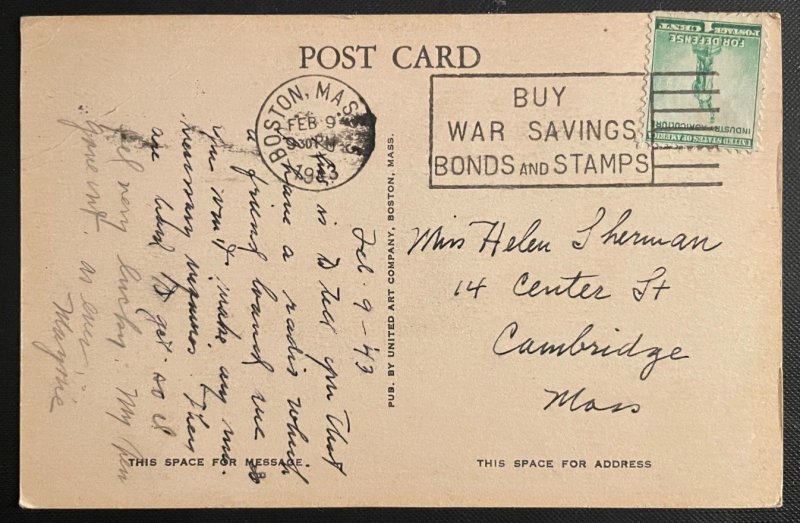 POST CARD
BOSTON, MASS.
FEB 9
9 30 PM
1943
BUY
WAR SAVINGS
BONDS AND STAMPS
1 CENT
POSTAGE
FOR DEFENSE
INDUSTRY·AGRICULTURE
UNITED STATES OF AMERICA
Feb. 9 - '43
This is to tell you that
I have a radio which
a friend loaned me so
you won't make any un-
necessary inquiries. They
are hard to get. so I
feel very lucky. My pen
gave out
as ever
Maymie
PUB. BY UNITED ART COMPANY, BOSTON, MASS.
Miss Helen Sherman
14 Center St
Cambridge
Mass
THIS SPACE FOR MESSAGE.
THIS SPACE FOR ADDRESS